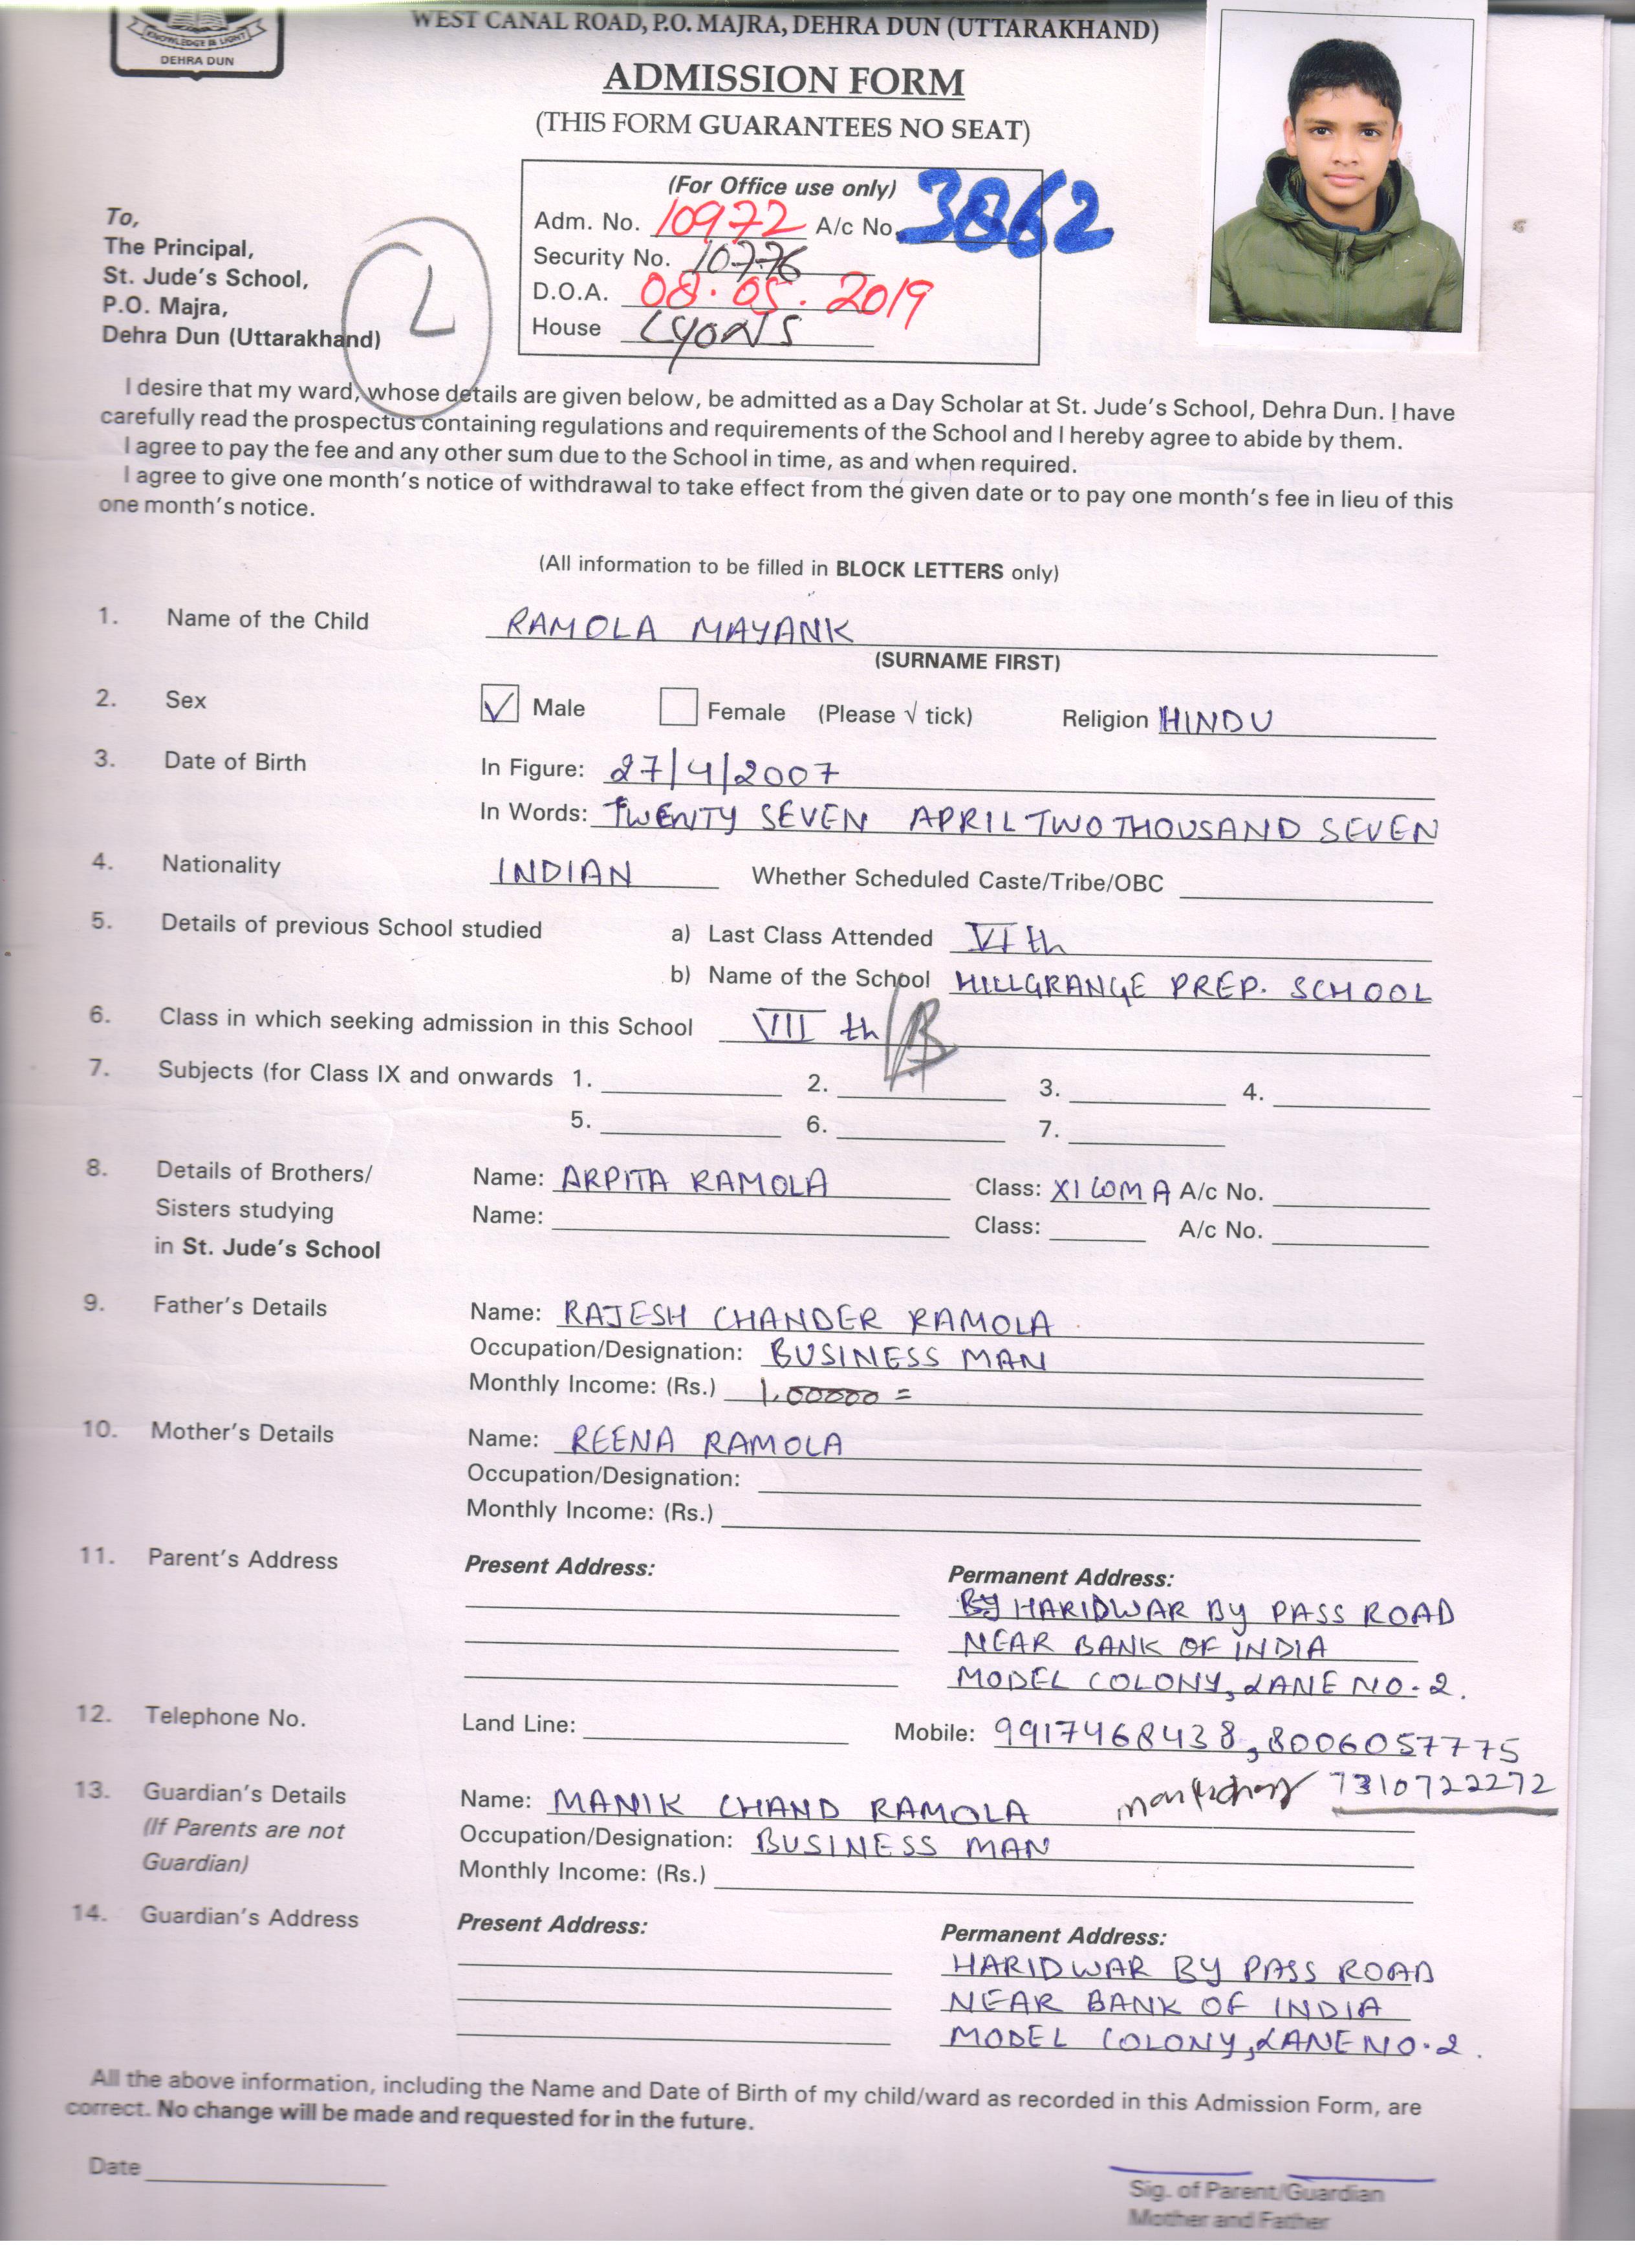 KNOWLEDGE IS LIGHT
DEHRA DUN
WEST CANAL ROAD, P.O. MAJRA, DEHRA DUN (UTTARAKHAND)
ADMISSION FORM
(THIS FORM GUARANTEES NO SEAT)
(For Office use only)
Adm. No. 10972 A/c No. 3862
Security No. 10776
D.O.A. 08.05.2019
House Lyons
To,
The Principal,
St. Jude's School,
P.O. Majra,
Dehra Dun (Uttarakhand)
2
I desire that my ward, whose details are given below, be admitted as a Day Scholar at St. Jude's School, Dehra Dun. I have
carefully read the prospectus containing regulations and requirements of the School and I hereby agree to abide by them.
I agree to pay the fee and any other sum due to the School in time, as and when required.
I agree to give one month's notice of withdrawal to take effect from the given date or to pay one month's fee in lieu of this
one month's notice.
(All information to be filled in BLOCK LETTERS only)
1. Name of the Child RAMOLA MAYANK
(SURNAME FIRST)
2. Sex ✓ Male Female (Please √ tick) Religion HINDU
3. Date of Birth In Figure: 27/4/2007
In Words: TWENTY SEVEN APRIL TWO THOUSAND SEVEN
4. Nationality INDIAN Whether Scheduled Caste/Tribe/OBC
5. Details of previous School studied a) Last Class Attended VIth
b) Name of the School HILLGRANGE PREP. SCHOOL
6. Class in which seeking admission in this School VII th/B
7. Subjects (for Class IX and onwards 1. 2. 3. 4.
5. 6. 7.
8. Details of Brothers/ Name: ARPITA RAMOLA Class: XI COM A A/c No.
Sisters studying Name: Class: A/c No.
in St. Jude's School
9. Father's Details Name: RAJESH CHANDER RAMOLA
Occupation/Designation: BUSINESS MAN
Monthly Income: (Rs.) 1,00000 =
10. Mother's Details Name: REENA RAMOLA
Occupation/Designation:
Monthly Income: (Rs.)
11. Parent's Address Present Address: Permanent Address:
HARIDWAR BY PASS ROAD
NEAR BANK OF INDIA
MODEL COLONY, LANE NO. 2.
12. Telephone No. Land Line: Mobile: 9917468438, 8006057775
7310722272
13. Guardian's Details Name: MANIK CHAND RAMOLA
(If Parents are not Occupation/Designation: BUSINESS MAN
Guardian) Monthly Income: (Rs.)
14. Guardian's Address Present Address: Permanent Address:
HARIDWAR BY PASS ROAD
NEAR BANK OF INDIA
MODEL COLONY, LANE NO. 2.
All the above information, including the Name and Date of Birth of my child/ward as recorded in this Admission Form, are
correct. No change will be made and requested for in the future.
Date
Sig. of Parent/Guardian
Mother and Father